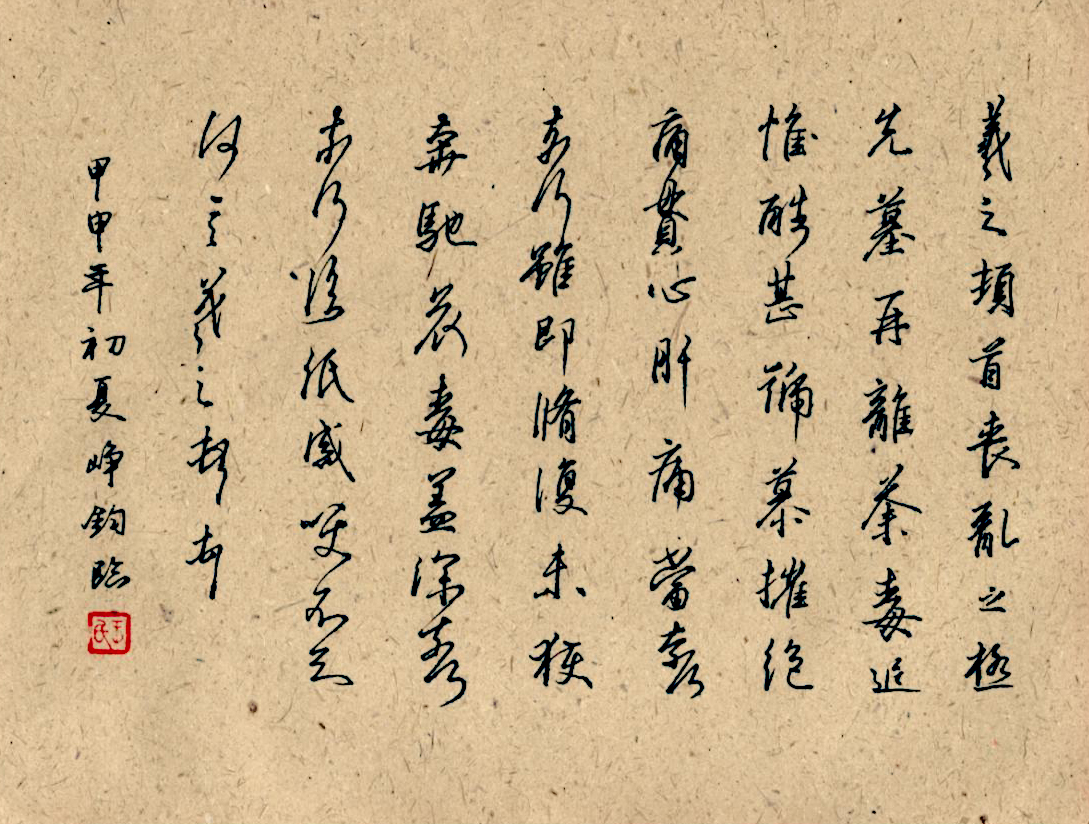 羲之頓首喪亂之極
先墓再離荼毒追
惟酷甚號慕摧絕
痛貫心肝痛當奈何
奈何雖即脩復未獲
奔馳哀毒益深奈何
奈何臨紙感哽不知
何言羲之頓首頓首
甲申年初夏崢鈞臨